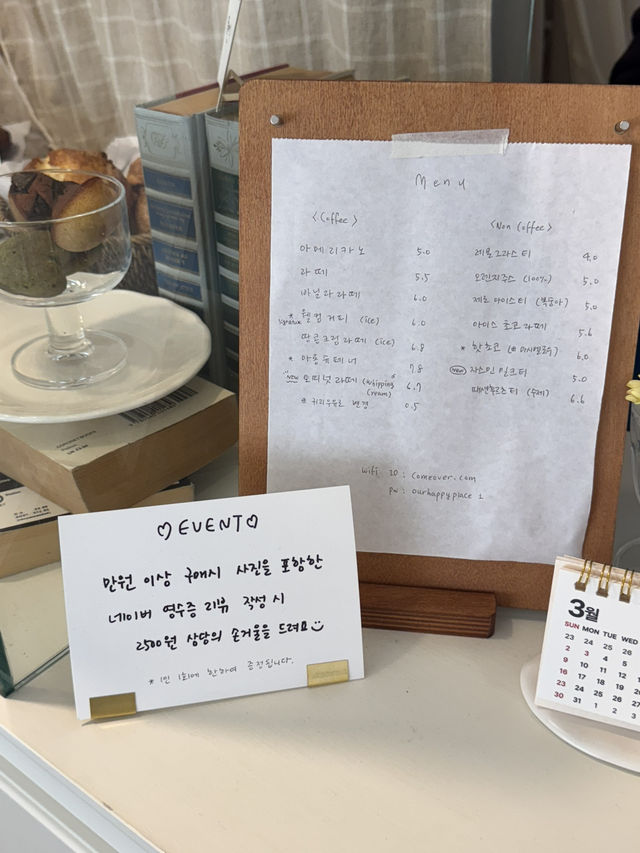 Menu
<Coffee>
아메리카노 5.0
라떼 5.5
바닐라라떼 6.0
* signature 웰컴 커피 (ice) 6.0
땅콩크림라떼 (ice) 6.8
* 아몽듀테너 7.8
new 오띠넛라떼 (whipping cream) 6.7
# 귀리우유로 변경 0.5
<Non Coffee>
레몬그라스 티 4.0
오렌지주스 (100%) 5.0
제로 아이스티 (복숭아) 5.0
아이스 초코라떼 5.6
* 핫초코 (# 마시멜로우) 6.0
New 자스민 밀크티 5.0
패션후르츠티 (수제) 6.6
wifi ID : comeover.com
pw : ourhappyplace 1
♡ EVENT ♡
만원 이상 구매시 사진을 포함한
네이버 영수증 리뷰 작성 시
2500원 상당의 손거울을 드려요
* 1인 1회에 한하여 증정됩니다.
3월
SUN MON TUE WED
23 24 25 26
2 3 4 5
9 10 11 12
16 17 18 19
23 24 25 26
30 31 1 2 3